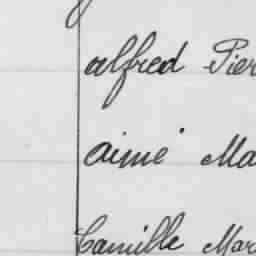 alfred Pier
aimé Ma
Camille Mar